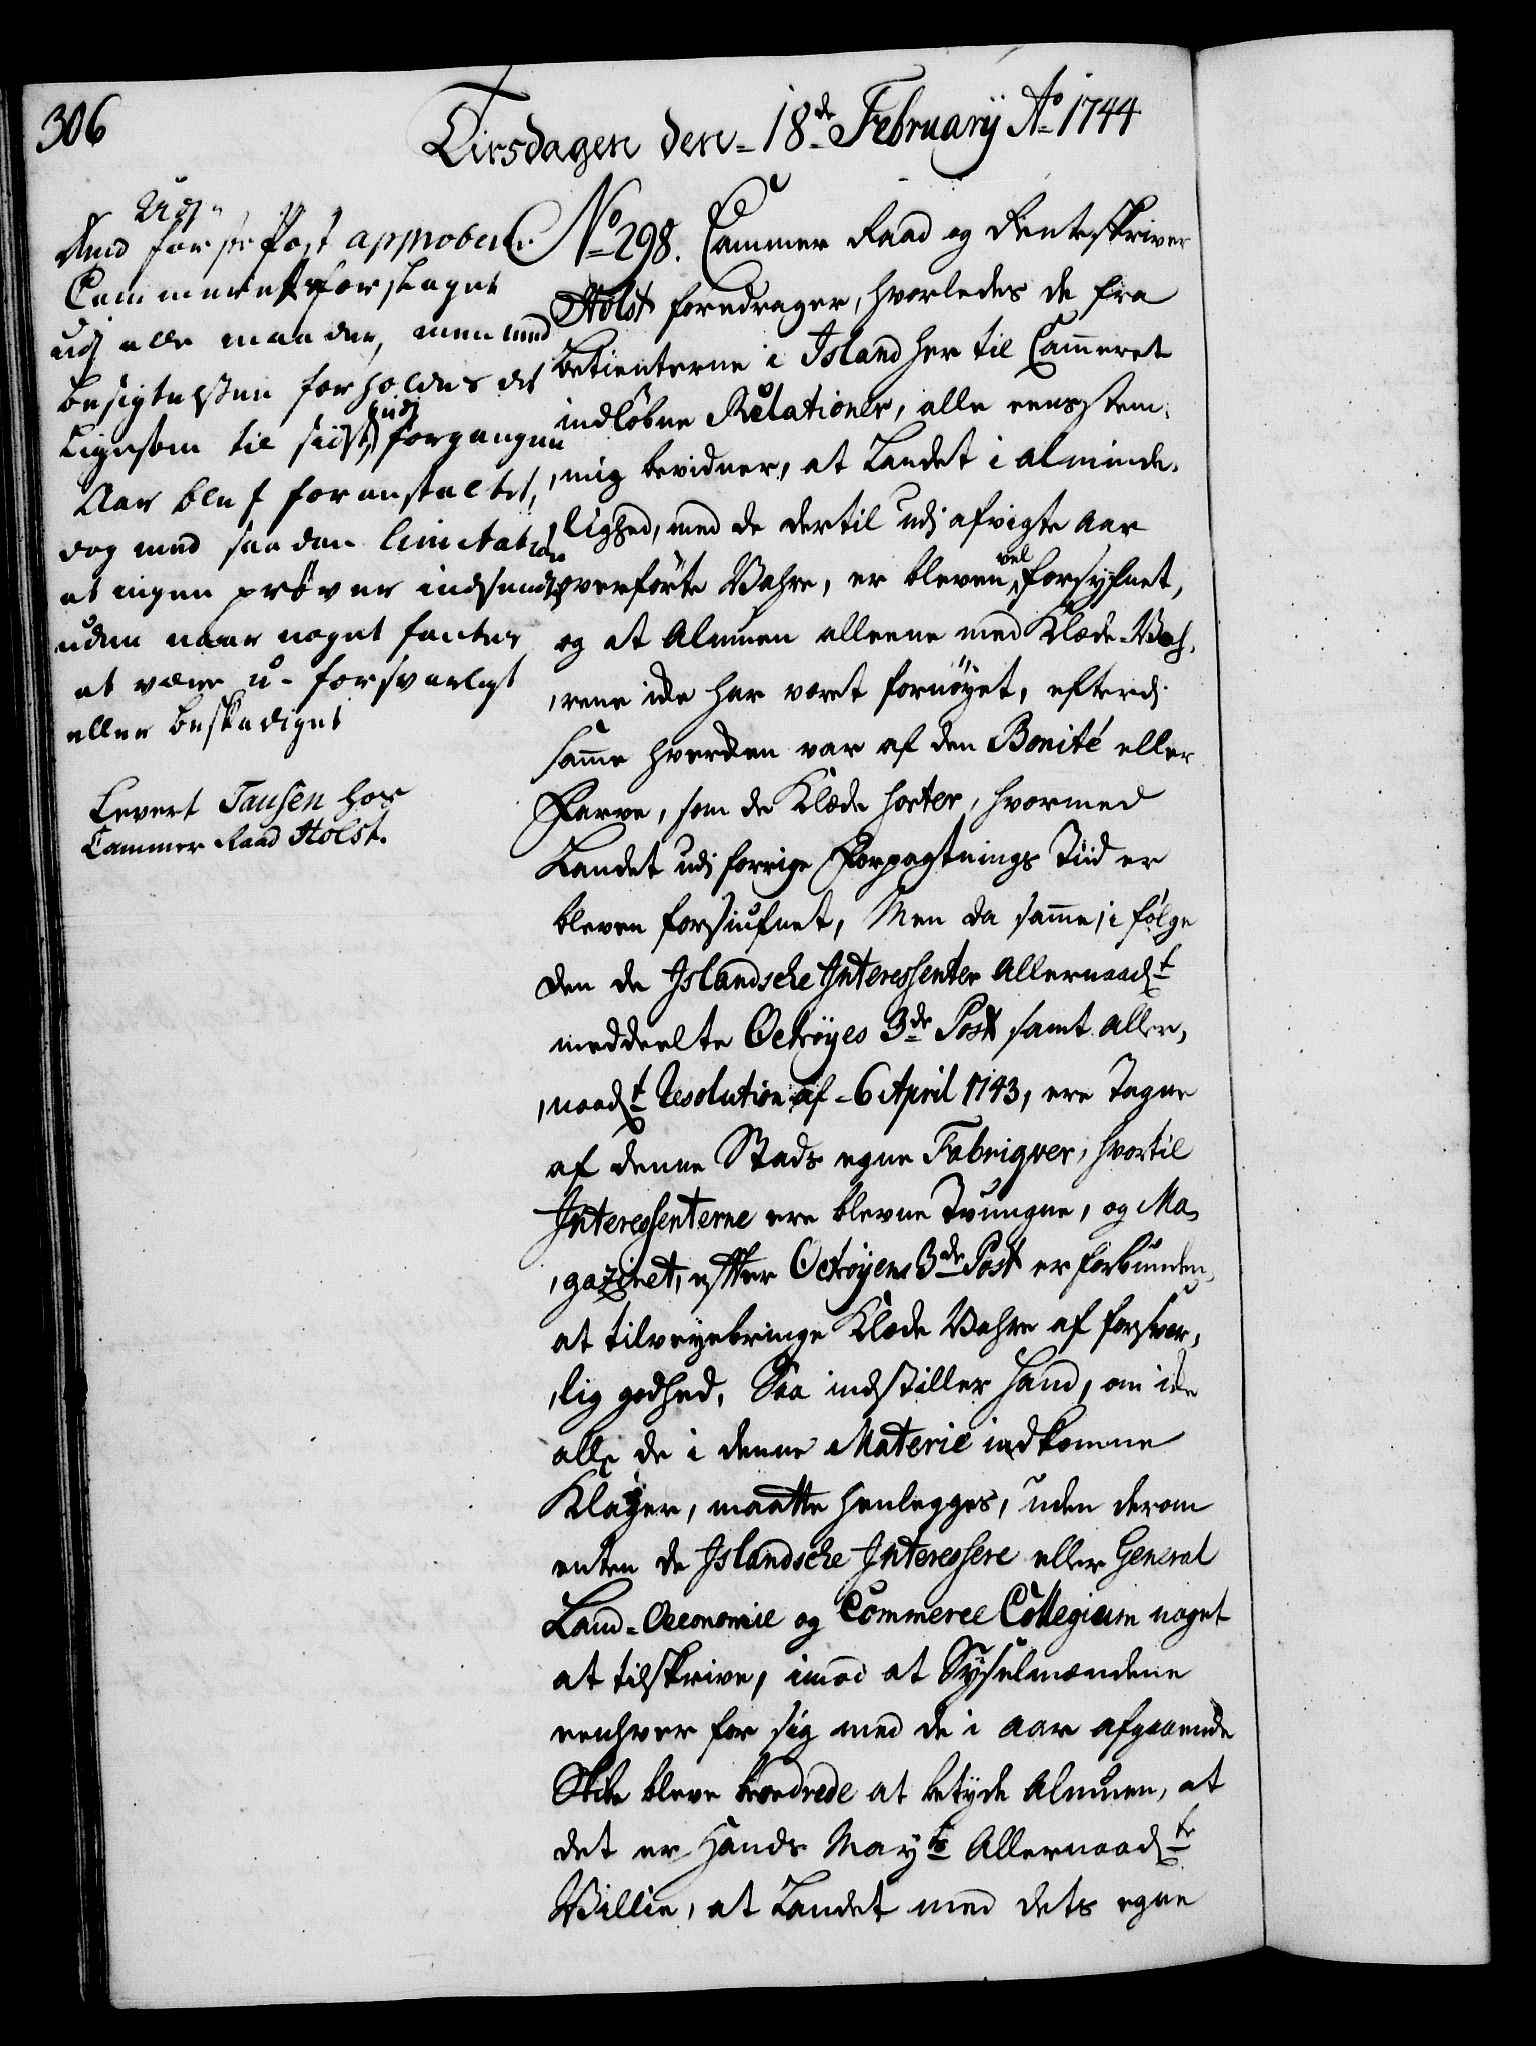 306
Tirsdagen den 18de February Ao 1744
Udj
første Post approberes
Cammerets forslaget
udj alle maader, men med
besigtelsen forholdes det
ligesom til sidst udj forgangen
Aar blef foranstaltet,
dog med saadan limitation
at ingen prøver indsendes
uden naar noget factes
at være u-forsvarligt
eller beskadiget
Levert Tausen hos
Cammer Raad Holst.
No 298. Cammer Raad og Rentskriver
Holst foredrager, hvorledes de fra
Betienterne i Island her til Cammeret
indløbne Relationer, alle eensstem,
,mig bevidner, at Landet i alminde,
,lighed, med de dertil udj afvigte Aar
overførte Vahre, er bleven vel forsyfnet,
og at Almuen alleene med Klæde-Vah,
,rene icke har været fornøyet, efterdj
samme hverken var af den Bonité eller
Farve, som de Klæde sorter, hvormed
Landet udj forrige Forpagtnings Tiid er
bleven forsiufnet, Men da samme, i følge
den de Islandsche Interessenter Allernaadt
meddeelte Octrøyes 3de Post samt Aller,
,naadt Resolution af 6 April 1743, ere Tagne
af denne Stads egne Fabriqver, hvortil
Interessenterne ere blevne Tvungne, og Ma,
,gazinet, efter Octrøyens 3de Post er forbunden,
at tilveyebringe Klæde Vahre af forsvar,
,lig godhed, Saa indstiller hand, om icke
alle de i denne Materie indkomne
Klager, maatte henlegges, uden derom
enten de Islandsche Interessere eller General
Land-Oeconomie og Commerce Collegium noget
at tilskrive, imod at Sysselmændene
eenhver for sig med de i Aar afgaaende
Skibe bleve beordrede at betyde Almuen, at
det er Hands Mayts Allernaadte
Villie, at Landet med dets egne